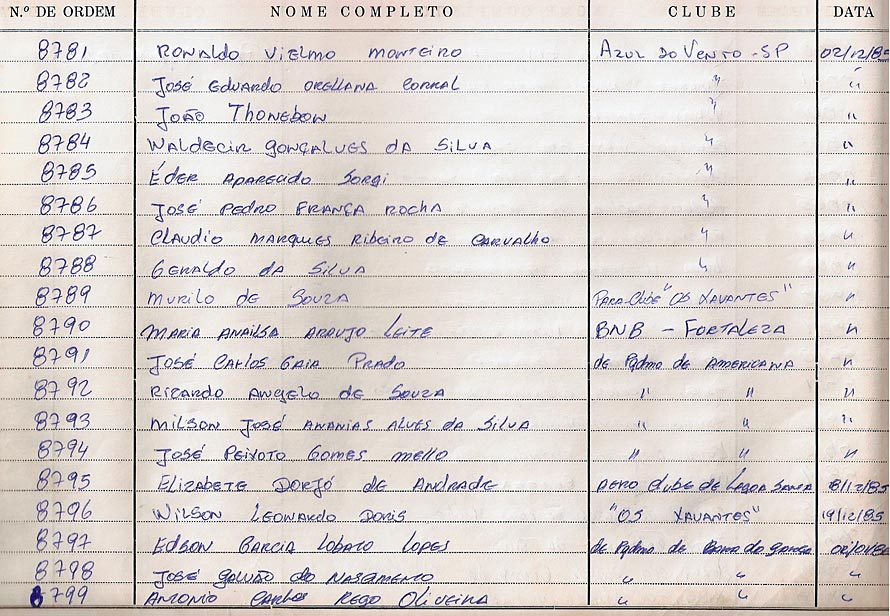 N.º DE ORDEM NOME COMPLETO CLUBE DATA
8781 RONALDO VIELMO MONTEIRO AZUL DO VENTO - SP 02/12/85
8782 JOSÉ EDUARDO ORELLANA CORRAL " "
8783 JOÃO THONEBON " "
8784 WALDECIR GONÇALVES DA SILVA " "
8785 ÉDER APARECIDO SORGI " "
8786 JOSÉ PEDRO FRANÇA ROCHA " "
8787 CLAUDIO MARQUES RIBEIRO DE CARVALHO " "
8788 GERALDO DA SILVA " "
8789 MURILO DE SOUZA PARA-CLUBE "OS XAVANTES" "
8790 MARIA ANAILSA ARAUJO LEITE BNB - FORTALEZA "
8791 JOSÉ CARLOS GAIA PRADO de Pqdmo de AMERICANA "
8792 RICARDO ANGELO DE SOUZA " " "
8793 MILSON JOSÉ ANANIAS ALVES DA SILVA " " "
8794 JOSÉ PEIXOTO GOMES MELLO " " "
8795 ELIZABETE DORJÓ DE ANDRADE AERO CLUBE DE LAGOA SANTA 18/12/85
8796 WILSON LEONARDO DORIS "OS XAVANTES" 19/12/85
8797 EDSON GARCIA LOBATO LOPES de Pqdmo de Barra do Garça
8798 JOSÉ GALVÃO DO NASCIMENTO " " "
8799 ANTONIO CARLOS REGO OLIVEIRA " " "